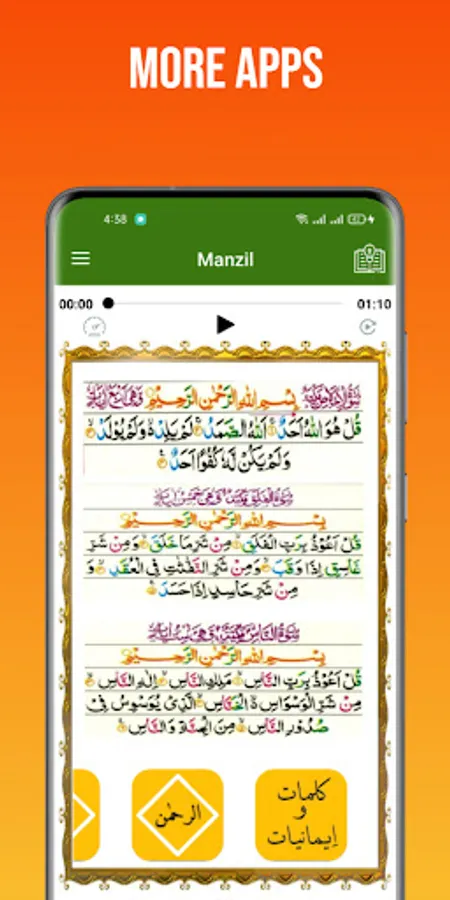 MORE APPS
4:38
Manzil
00:00 01:10
سُوْرَةُ الْاِخْلَاصِ مَكِّيَّةٌ بِسْمِ اللهِ الرَّحْمٰنِ الرَّحِيْمِ وَهِيَ اَرْبَعُ اٰيَاتٍ
قُلْ هُوَ اللهُ اَحَدٌ اَللهُ الصَّمَدُ لَمْ يَلِدْ وَلَمْ يُوْلَدْ
وَلَمْ يَكُنْ لَّهٗ كُفُوًا اَحَدٌ
سُوْرَةُ الْفَلَقِ مَكِّيَّةٌ وَّهِيَ خَمْسُ اٰيَاتٍ
بِسْمِ اللهِ الرَّحْمٰنِ الرَّحِيْمِ
قُلْ اَعُوْذُ بِرَبِّ الْفَلَقِ مِنْ شَرِّ مَا خَلَقَ وَمِنْ شَرِّ
غَاسِقٍ اِذَا وَقَبَ وَمِنْ شَرِّ النَّفّٰثٰتِ فِي الْعُقَدِ وَ
مِنْ شَرِّ حَاسِدٍ اِذَا حَسَدَ
سُوْرَةُ النَّاسِ مَكِّيَّةٌ وَّهِيَ سِتُّ اٰيَاتٍ
بِسْمِ اللهِ الرَّحْمٰنِ الرَّحِيْمِ
قُلْ اَعُوْذُ بِرَبِّ النَّاسِ مَلِكِ النَّاسِ اِلٰهِ النَّاسِ
مِنْ شَرِّ الْوَسْوَاسِ الْخَنَّاسِ الَّذِيْ يُوَسْوِسُ فِيْ
صُدُوْرِ النَّاسِ مِنَ الْجِنَّةِ وَالنَّاسِ
الرحمٰن
كلمات
و
اِيمانيات